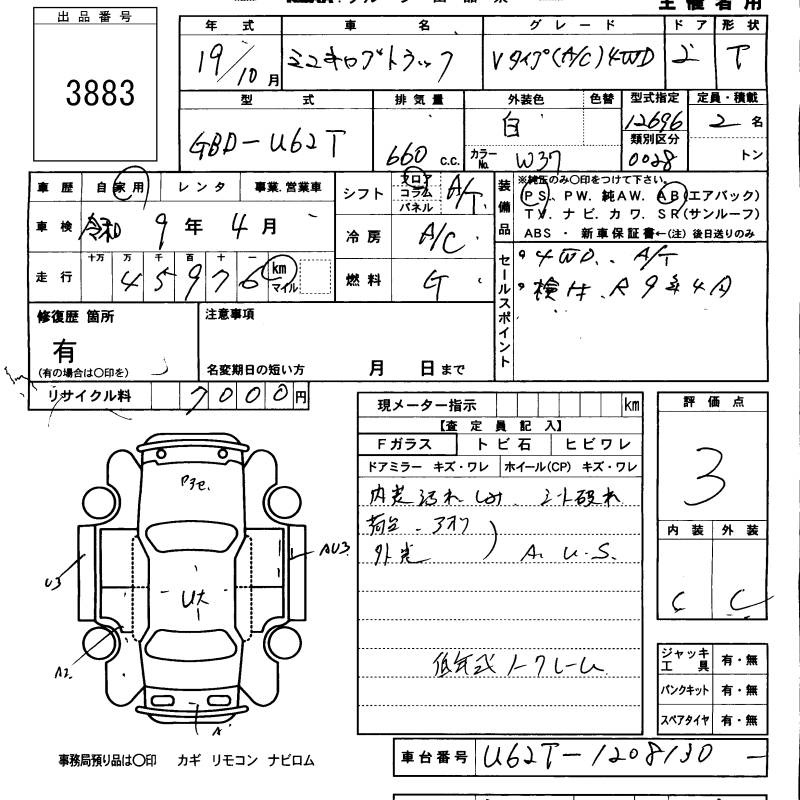 主催者用
出品番号
3883
年式 車名 グレード ドア 形状
19/10月 ミニキャブトラック Vタイプ(A/C)4WD 2 T
型式 排気量 外装色 色替 型式指定 定員・積載
GBD-U62T 660 C.C. 白 12696 2名
カラーNo. W37 類別区分 0028 トン
車歴 自家用 レンタ 事業.営業車
シフト フロア コラム パネル A/T
車検 令和 9年 4月
冷房 A/C
走行 十万 万 千 百 十 一 45976 km マイル
燃料 G
装備品 ※純正のみ〇印をつけて下さい。
PS、PW. 純AW. AB(エアバック)
TV. ナビ. カワ. SR(サンルーフ)
ABS ・ 新車保証書←(注) 後日送りのみ
セールスポイント
4WD.. A/T
検付. R9年4月
修復歴 箇所
有
(有の場合は〇印を)
注意事項
名変期日の短い方 月 日まで
リサイクル料 7000円
現メーター指示 km
【査定員記入】
Fガラス トビ石 ヒビワレ
ドアミラー キズ・ワレ ホイール(CP) キズ・ワレ
内装汚れ シート破れ
荷台
外装 A. U.S.
低年式
評価点
3
内装 外装
C C
ジャッキ工具 有・無
パンクキット 有・無
スペアタイヤ 有・無
U3
AU3
A2
A
事務局預り品は〇印 カギ リモコン ナビロム
車台番号 U62T-1208130